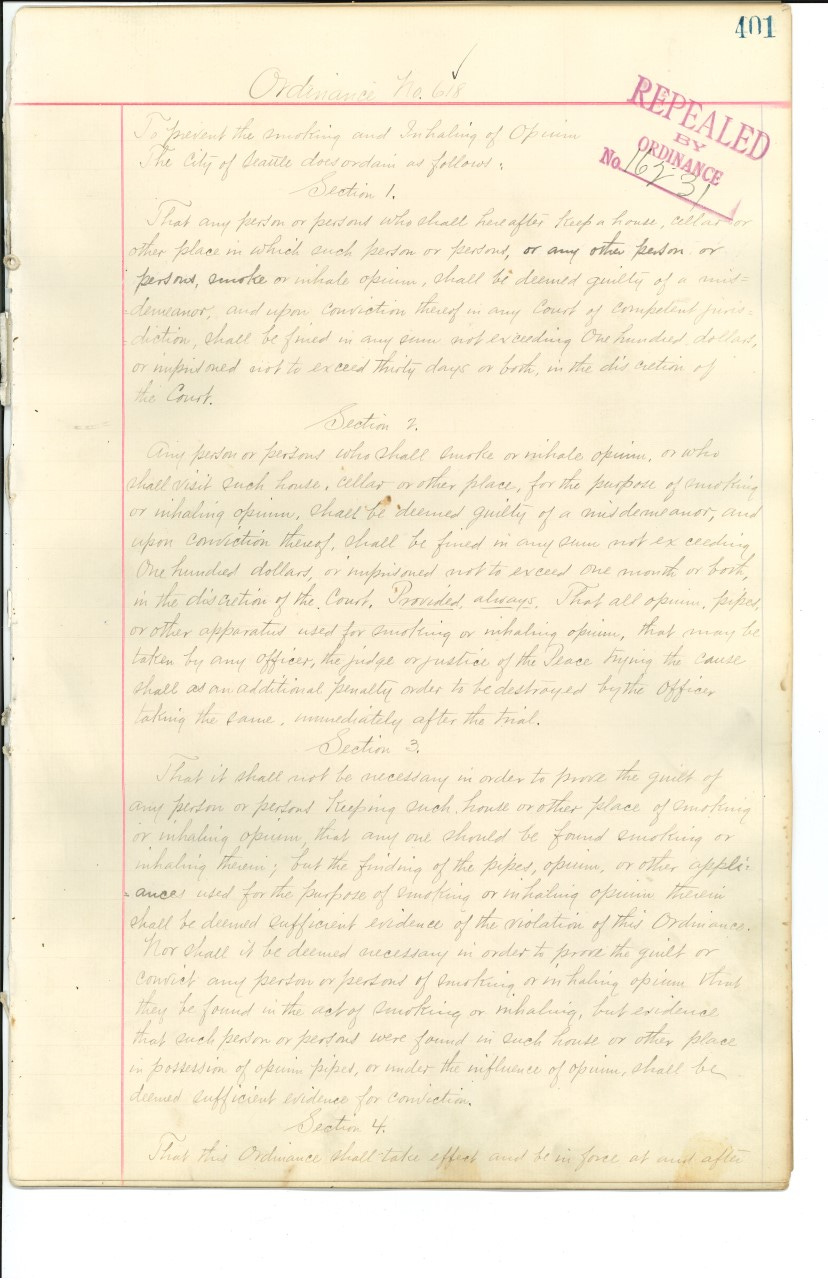 401
Ordinance No. 618
REPEALED
BY
ORDINANCE
No. 16231
To prevent the smoking and Inhaling of Opium
The City of Seattle does ordain as follows:
Section 1.
That any person or persons who shall hereafter keep a house, cellar or
other place in which such person or persons, or any other person or
persons, smoke or inhale opium, shall be deemed guilty of a mis=
=demeanor, and upon conviction thereof in any Court of competent juris=
=diction, shall be fined in any sum not exceeding One hundred dollars,
or imprisoned not to exceed thirty days or both, in the discretion of
the Court.
Section 2.
Any person or persons who shall smoke or inhale opium, or who
shall visit such house, cellar or other place, for the purpose of smoking
or inhaling opium, shall be deemed guilty of a misdemeanor, and
upon conviction thereof, shall be fined in any sum not exceeding
One hundred dollars, or imprisoned not to exceed one month or both,
in the discretion of the Court. Provided, always. That all opium, pipes,
or other apparatus used for smoking or inhaling opium, that may be
taken by any officer, the judge or justice of the Peace trying the cause
shall as an additional penalty order to be destroyed by the officer
taking the same, immediately after the trial.
Section 3.
That it shall not be necessary in order to prove the guilt of
any person or persons keeping such house or other place of smoking
or inhaling opium, that any one should be found smoking or
inhaling therein; but the finding of the pipes, opium, or other appli=
=ances used for the purpose of smoking or inhaling opium therein
shall be deemed sufficient evidence of the violation of this Ordinance.
Nor shall it be deemed necessary in order to prove the guilt or
convict any person or persons of smoking or inhaling opium that
they be found in the act of smoking or inhaling, but evidence
that such person or persons were found in such house or other place
in possession of opium pipes, or under the influence of opium, shall be
deemed sufficient evidence for conviction.
Section 4.
That this Ordinance shall take effect and be in force at and after